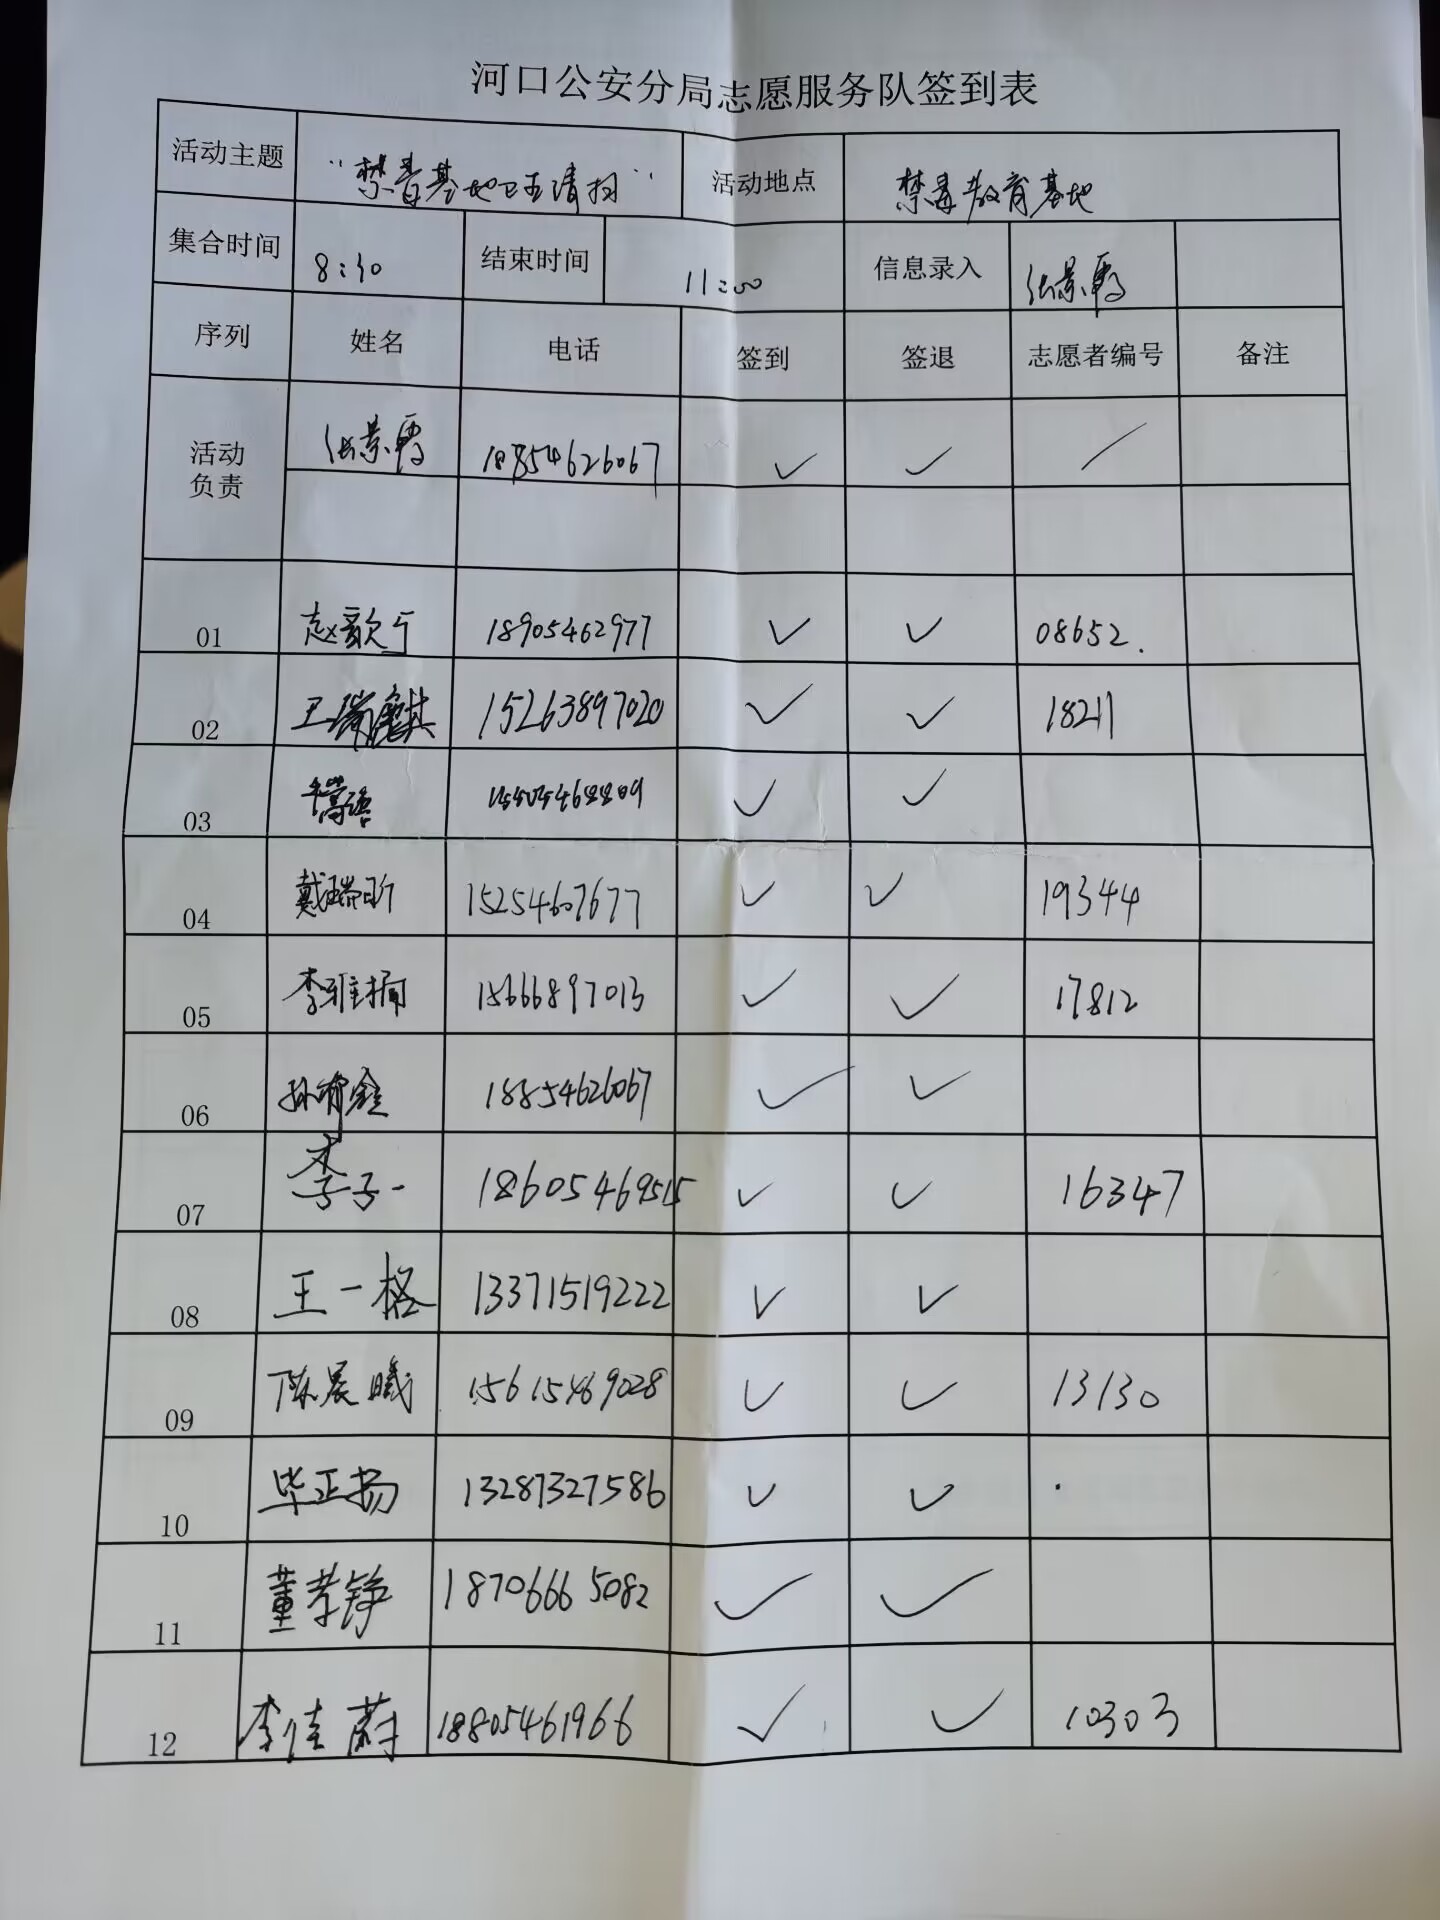 河口公安分局志愿服务队签到表
活动主题 "禁毒基地卫生清扫" 活动地点 禁毒教育基地
集合时间 8:30 结束时间 11:00 信息录入 张景霞
序列 姓名 电话 签到 签退 志愿者编号 备注
活动负责 张景霞 18854626067 ✓ ✓ /
01 赵歆宁 18905462977 ✓ ✓ 08652.
02 王瑞麒 15263897020 ✓ ✓ 18211
03 ✓ ✓
04 戴瑞昕 15254607677 ✓ ✓ 19344
05 李雅楠 15666897013 ✓ ✓ 17812
06 18854626067 ✓ ✓
07 李子一 18605469515 ✓ ✓ 16347
08 王一格 13371519222 ✓ ✓
09 陈晨曦 15615469028 ✓ ✓ 13130
10 毕正扬 13287327586 ✓ ✓
11 董孝铮 18706665082 ✓ ✓
12 李佳蔚 18805461966 ✓ ✓ 10303